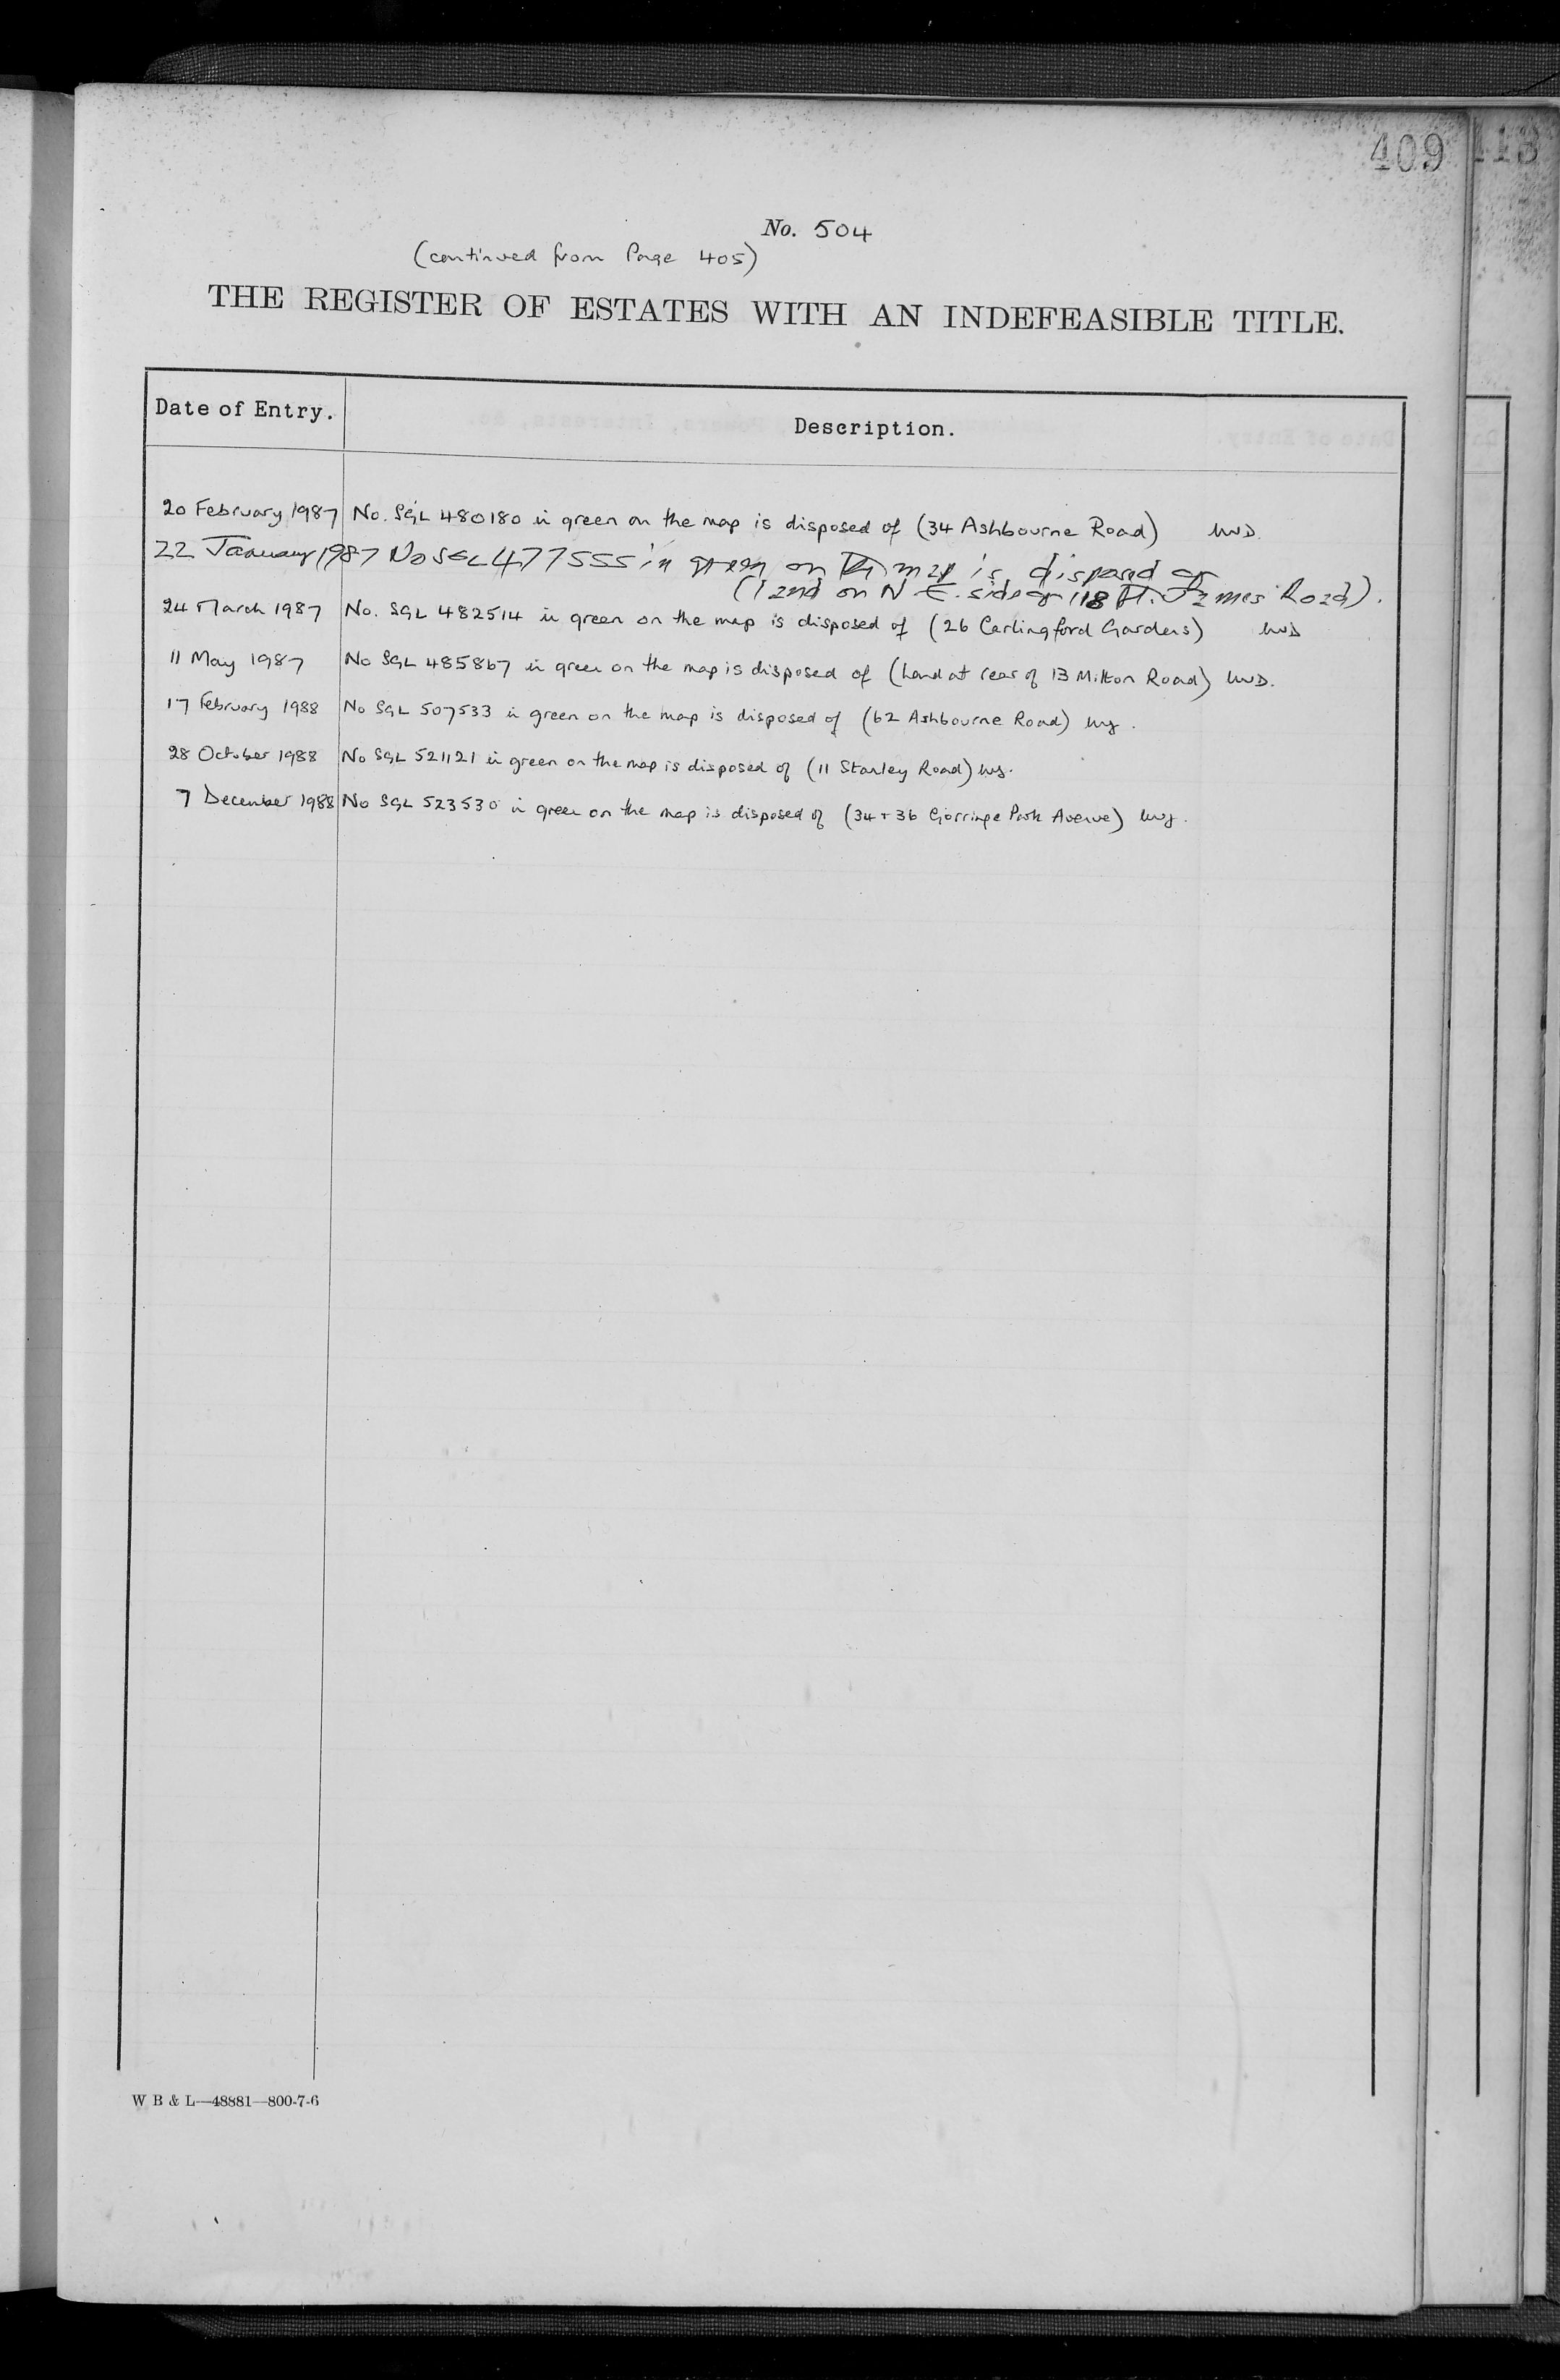 409
113
No. 504
(continued from Page 405)
THE REGISTER OF ESTATES WITH AN INDEFEASIBLE TITLE.
Date of Entry.
Description.
20 February 1987 No. SGL 480180 in green on the map is disposed of (34 Ashbourne Road)
22 January 1987 No SGL 477555 in green on the map is disposed of
(land on N.E. side of 118 St. James Road).
24 March 1987 No. SGL 482514 in green on the map is disposed of (26 Carlingford Gardens)
11 May 1987 No SGL 485867 in green on the map is disposed of (Land at rear of 13 Milton Road)
17 February 1988 No SGL 507533 in green on the map is disposed of (62 Ashbourne Road)
28 October 1988 No SGL 521121 in green on the map is disposed of (11 Stanley Road)
7 December 1988 No SGL 523530 in green on the map is disposed of (34 + 36 Gorringe Park Avenue)
W B & L—48881—800-7-6